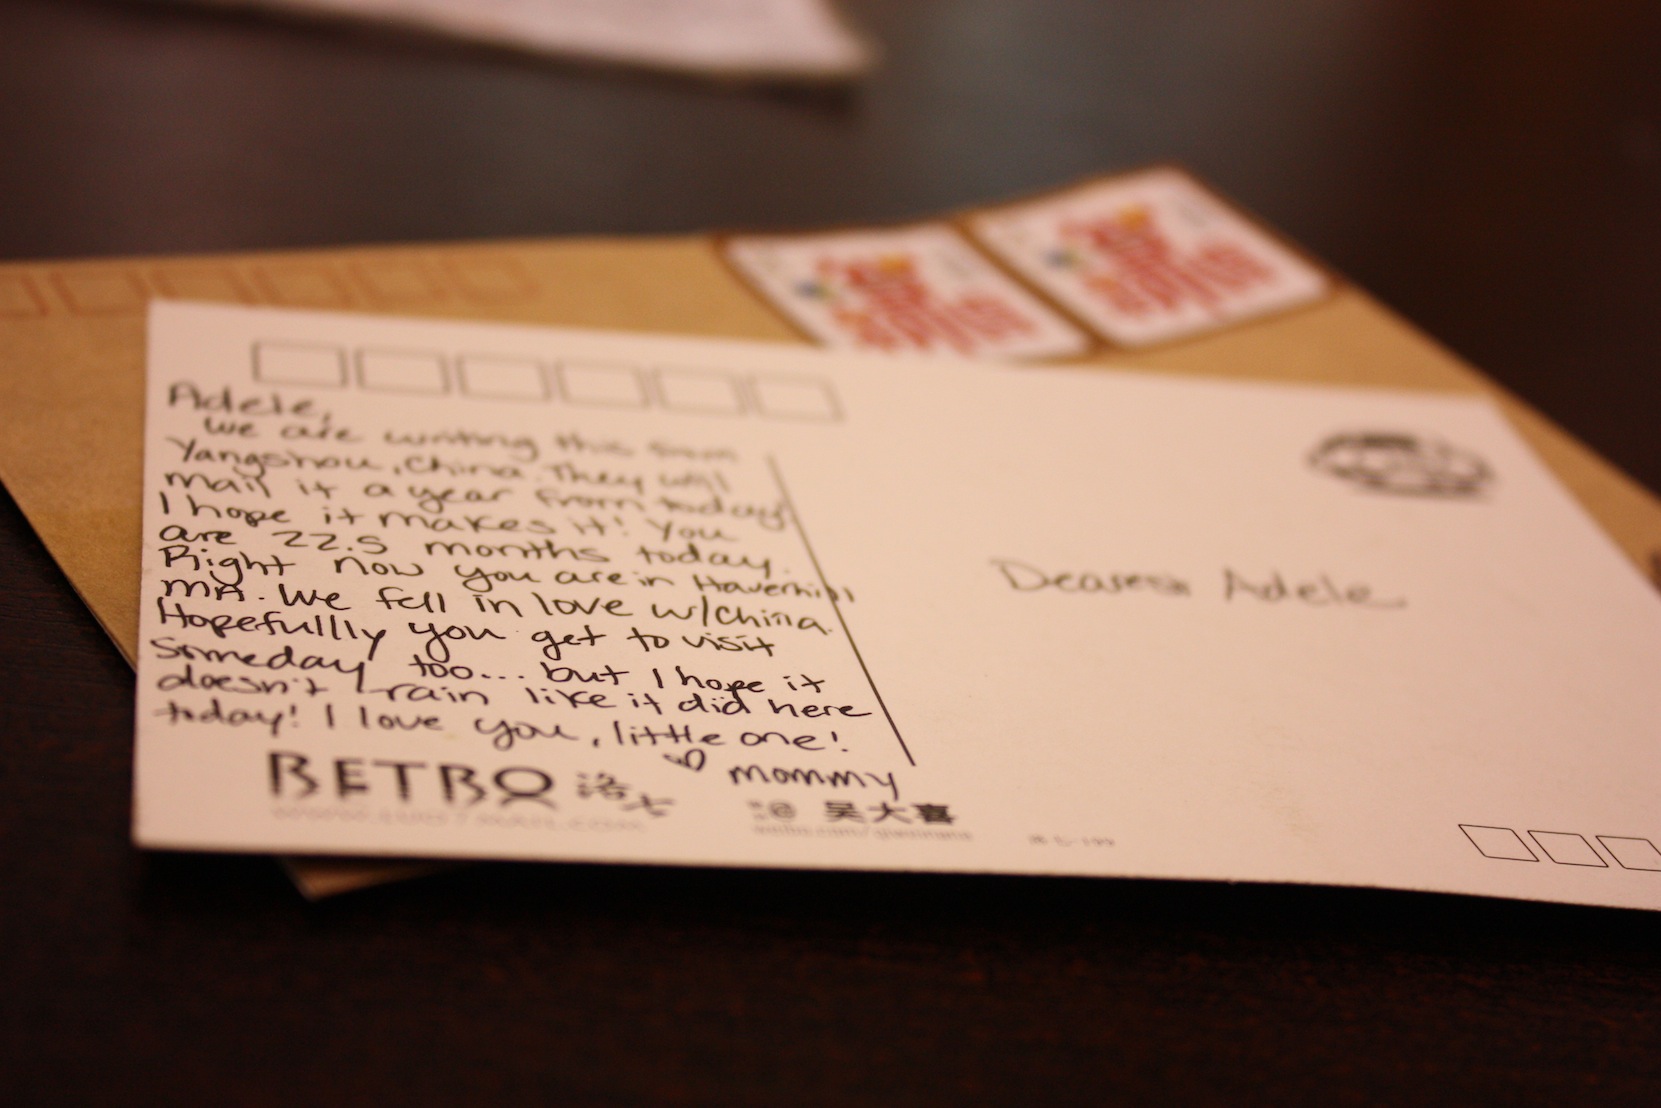 Adele,
We are writing this from
Yangshou, China. They will
mail it a year from today.
I hope it makes it! You
are 22.5 months today.
Right now you are in Haverhill
MA. We fell in love w/China.
Hopefullly you get to visit
someday too... but I hope it
doesn't rain like it did here
today! I love you, little one!
♡ mommy
Dearest Adele
BETBO 洛七
@ 吴大喜